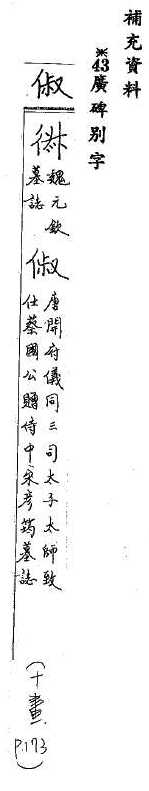 補充資料
※43廣碑別字
俶
魏元欽
墓誌
俶
唐開府儀同三司太子太師致
仕蔡國公贈侍中宋彥筠墓誌
(十畫
P.173)